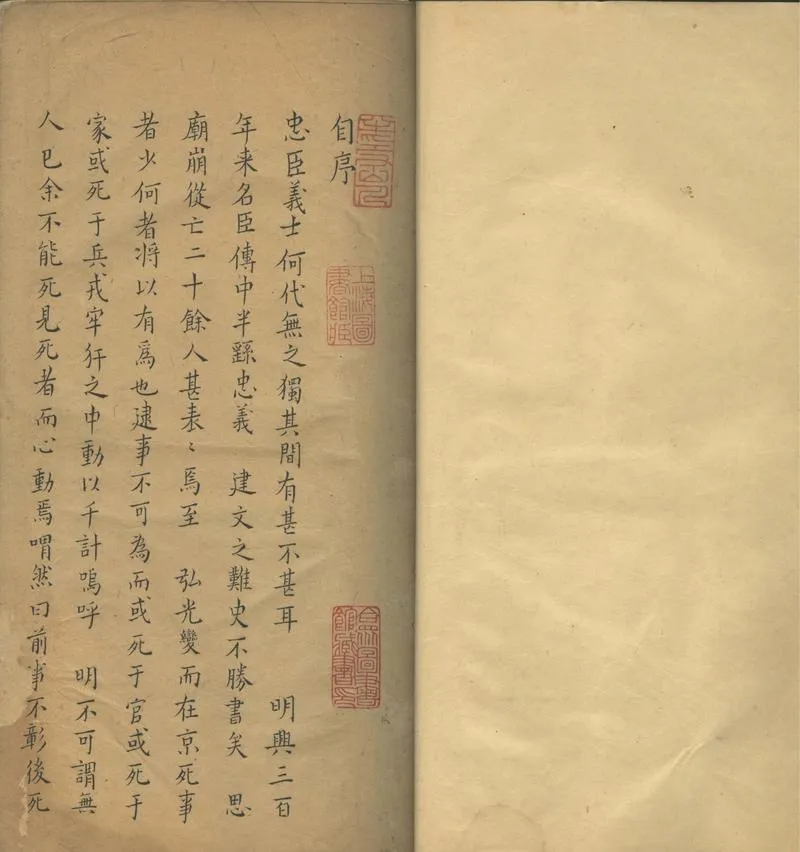 自序
忠臣義士何代無之獨其間有甚不甚耳　明興三百
年来名臣傳中半繇忠義　建文之難史不勝書矣　思
廟崩從亡二十餘人甚表〻焉至　弘光變而在京死事
者少何者将以有爲也逮事不可為而或死于官或死于
家或死于兵戎牢犴之中動以千計嗚呼　明不可謂無
人已余不能死見死者而心動焉喟然曰前事不彰後死
上海圖書館藏